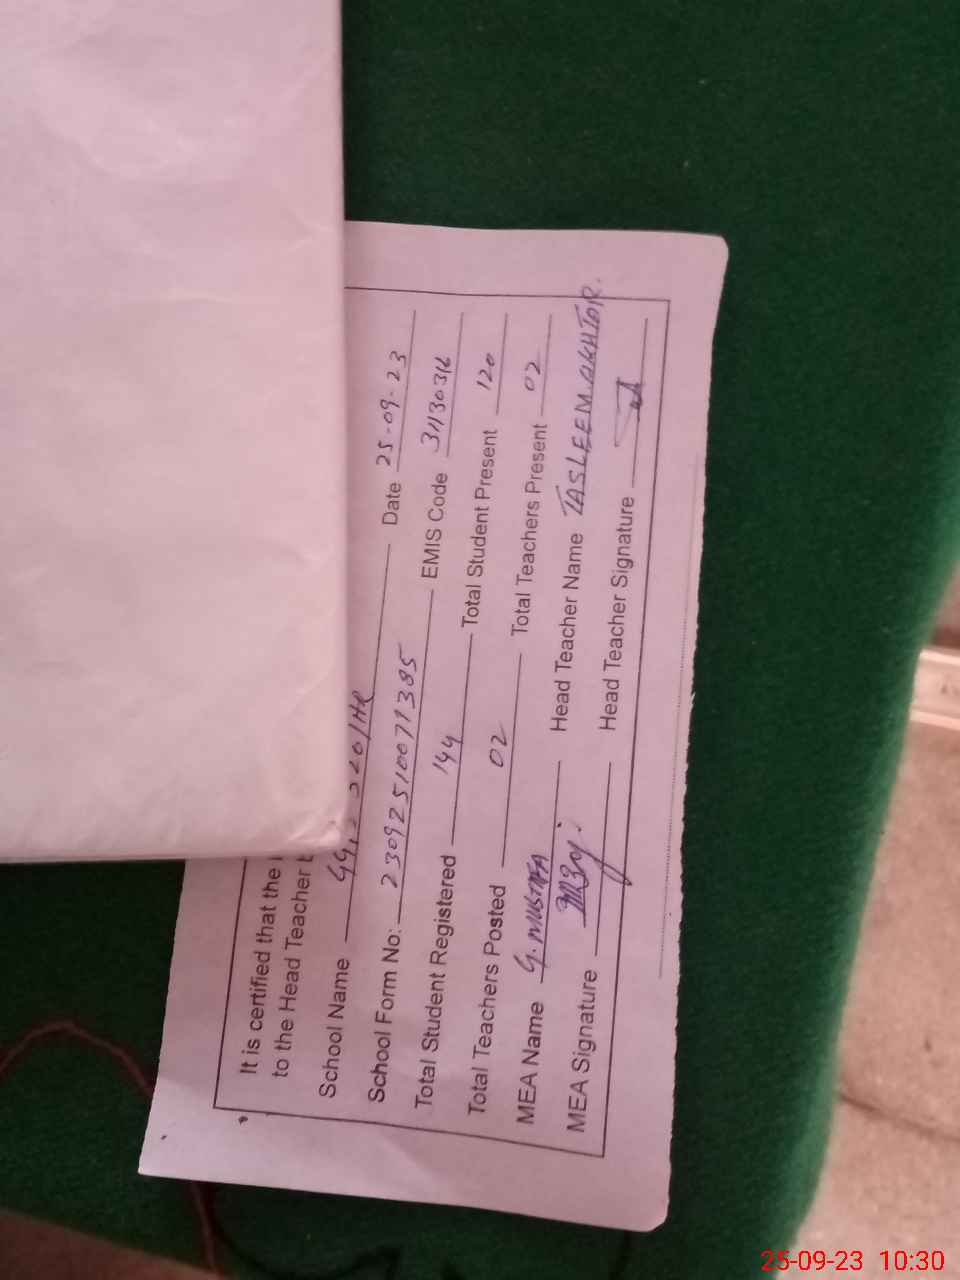 It is certified that the
to the Head Teacher
School Name Date 25-09-23
School Form No: 23092510071385 EMIS Code 31130316
Total Student Registered 144 Total Student Present 120
Total Teachers Posted 02 Total Teachers Present 02
MEA Name G. MUSTAFA Head Teacher Name TASLEEM AKHTAR.
MEA Signature Head Teacher Signature
25-09-23 10:30